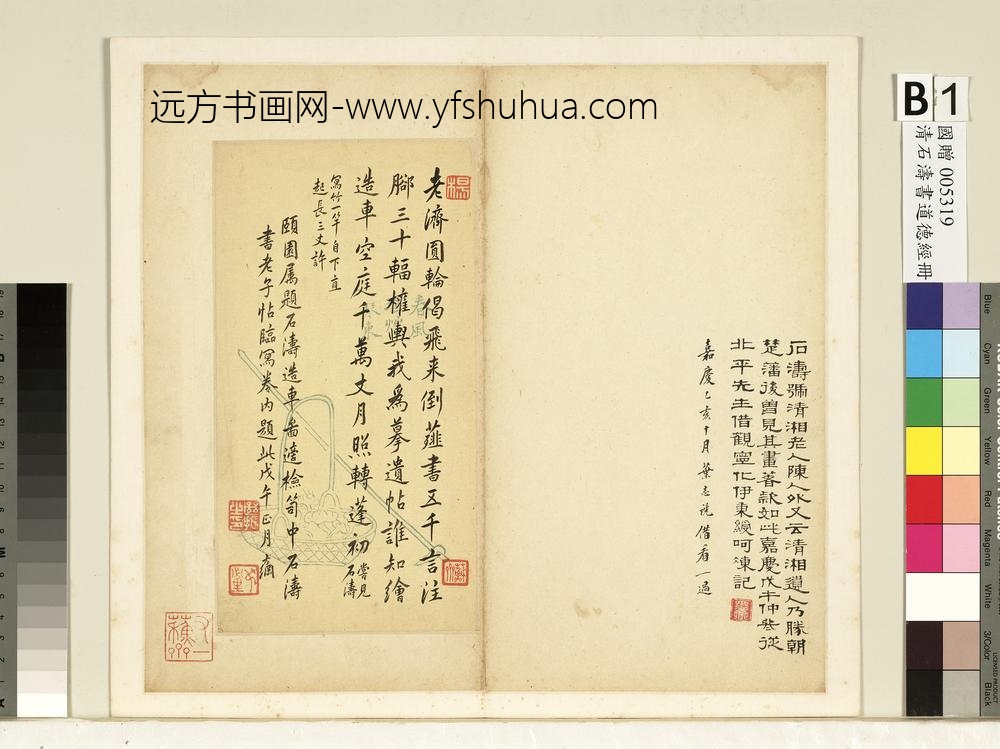 远方书画网-www.yfshuhua.com
B 1
國贈 005319
清石濤書道德經冊
石濤號清湘老人陳人外又云清湘遺人乃勝朝
楚藩後曾見其畫蕃款如此嘉慶戊午仲冬從
北平先生借觀寧化伊東綬呵凍記
嘉慶乙亥十月葉志詵借看一過
老濤圓輪偈飛来倒薤書五千言注
腳三十輻權輿我為摹遺帖誰知繪
造車空庭千萬丈月照轉蓬初
嘗見石濤
寫竹一竿自下直
起長三丈許
頤園属題石濤造車啚適檢笥中石濤
書老子帖臨寫卷內題此戊午正月
春風
Blue
Cyan
Green
Yellow
Red
Magenta
White
3/Color
Black